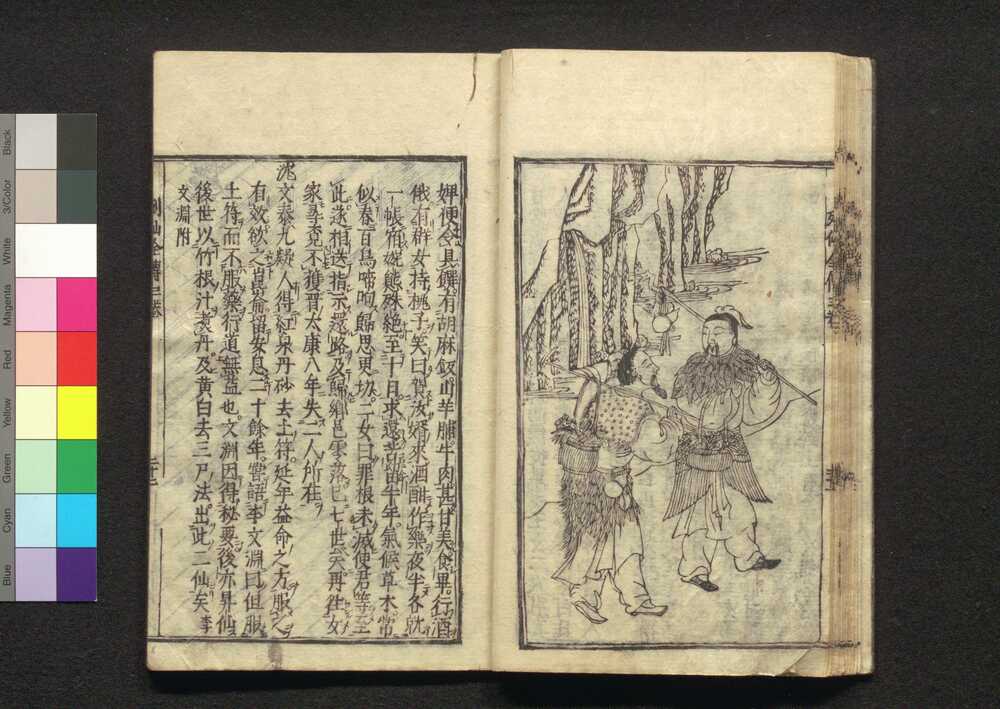 列仙全傳三卷
婢便令具饌有胡麻飯山羊脯牛肉甚甘美食畢行酒
俄有群女持桃子笑曰賀汝婿來酒酣作樂夜半各就
一帳宿婉態殊絕至十日求還苦留半年氣候草木常
似春百鳥啼鳴歸思更切二女曰罪根未滅使君等至
此遂相送指示還路及歸鄉邑零落已七世矣再往女
家尋覓不獲晉太康八年失二人所在
沈文泰九疑人得紅泉丹砂去土符延年益命之方服之
有效欲之崑崙留安息二十餘年嘗語李文淵曰但服
土符而不服藥行道無益也文淵因得秘要後亦昇仙
後世以竹根汁煑丹及黃白去三尸法出此二仙矣李
文淵附
列仙全傳三卷
Black
3/Color
White
Magenta
Red
Yellow
Green
Cyan
Blue